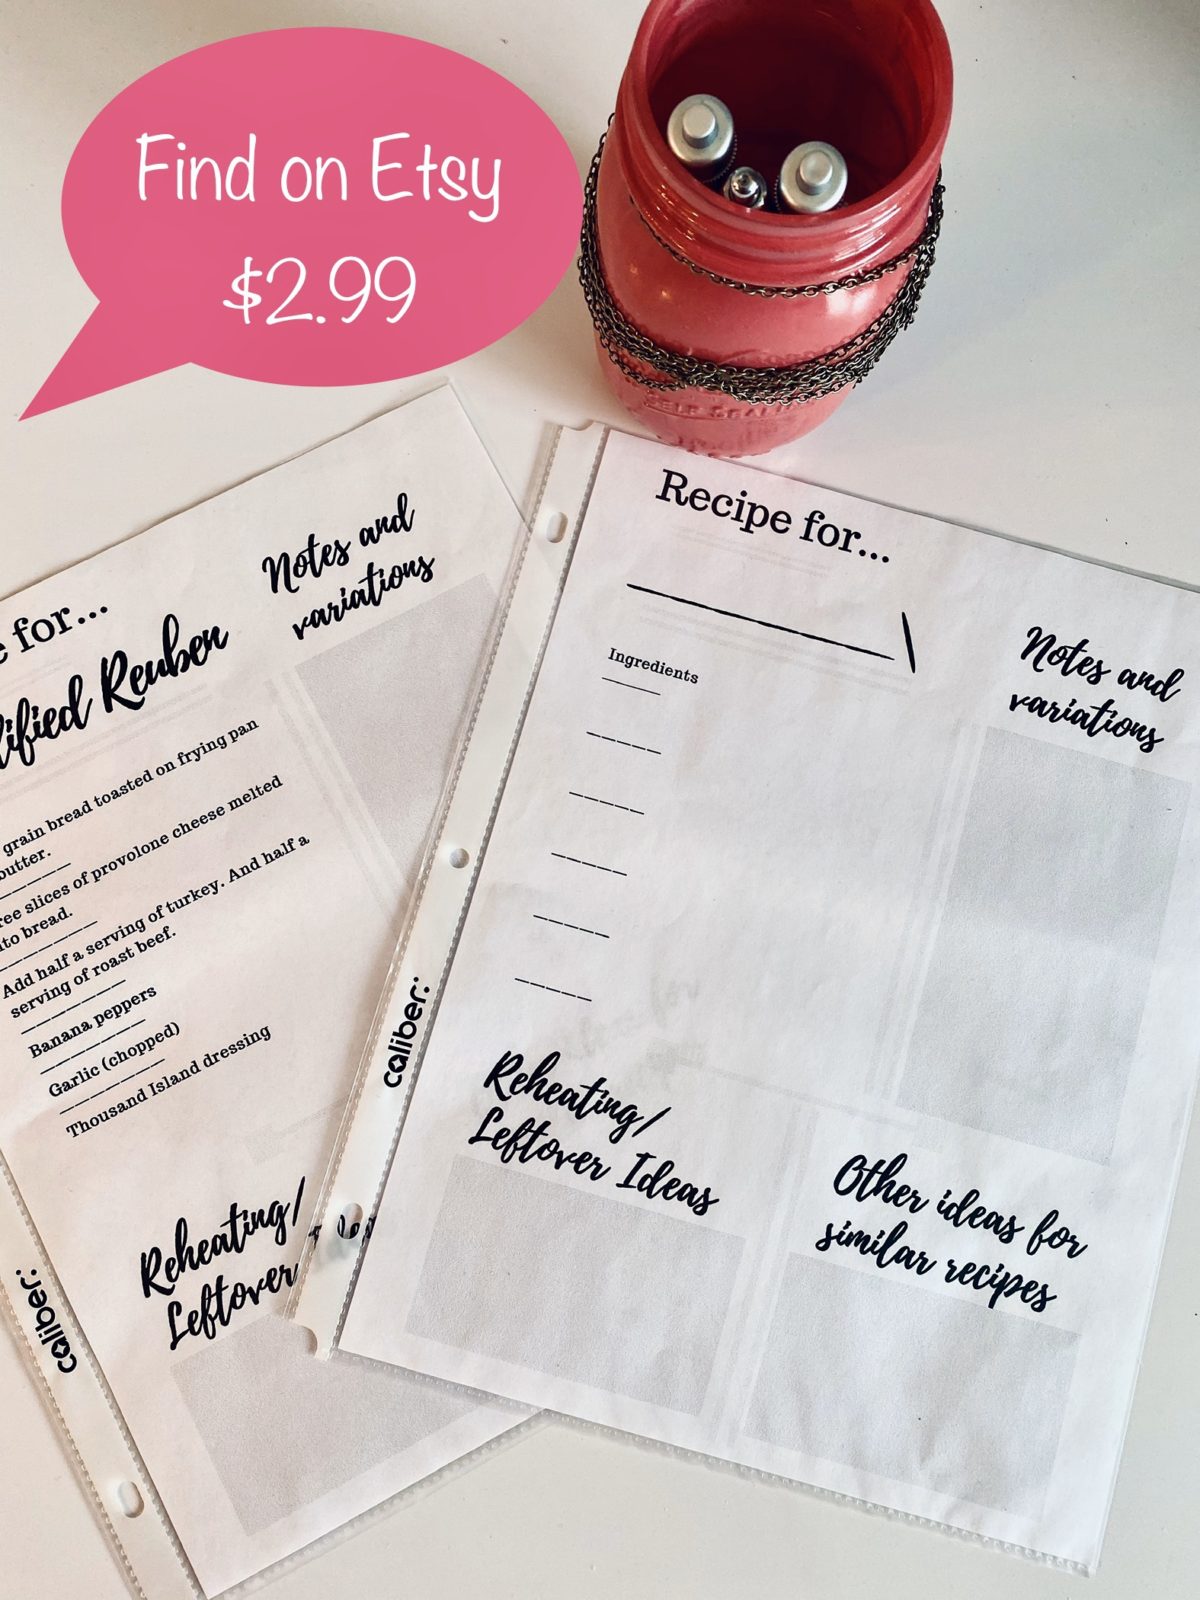 Find on Etsy
$2.99
SELF SEALING
for...
Reuben
Notes and
variations
grain bread toasted on frying pan
butter.
slices of provolone cheese melted
bread.
Add half a serving of turkey. And half a
serving of roast beef.
Banana peppers
Garlic (chopped)
Thousand Island dressing
Reheating/
Leftover
caliber:
Recipe for...
Ingredients
Notes and
variations
Reheating/
Leftover Ideas
Other ideas for
similar recipes
caliber: